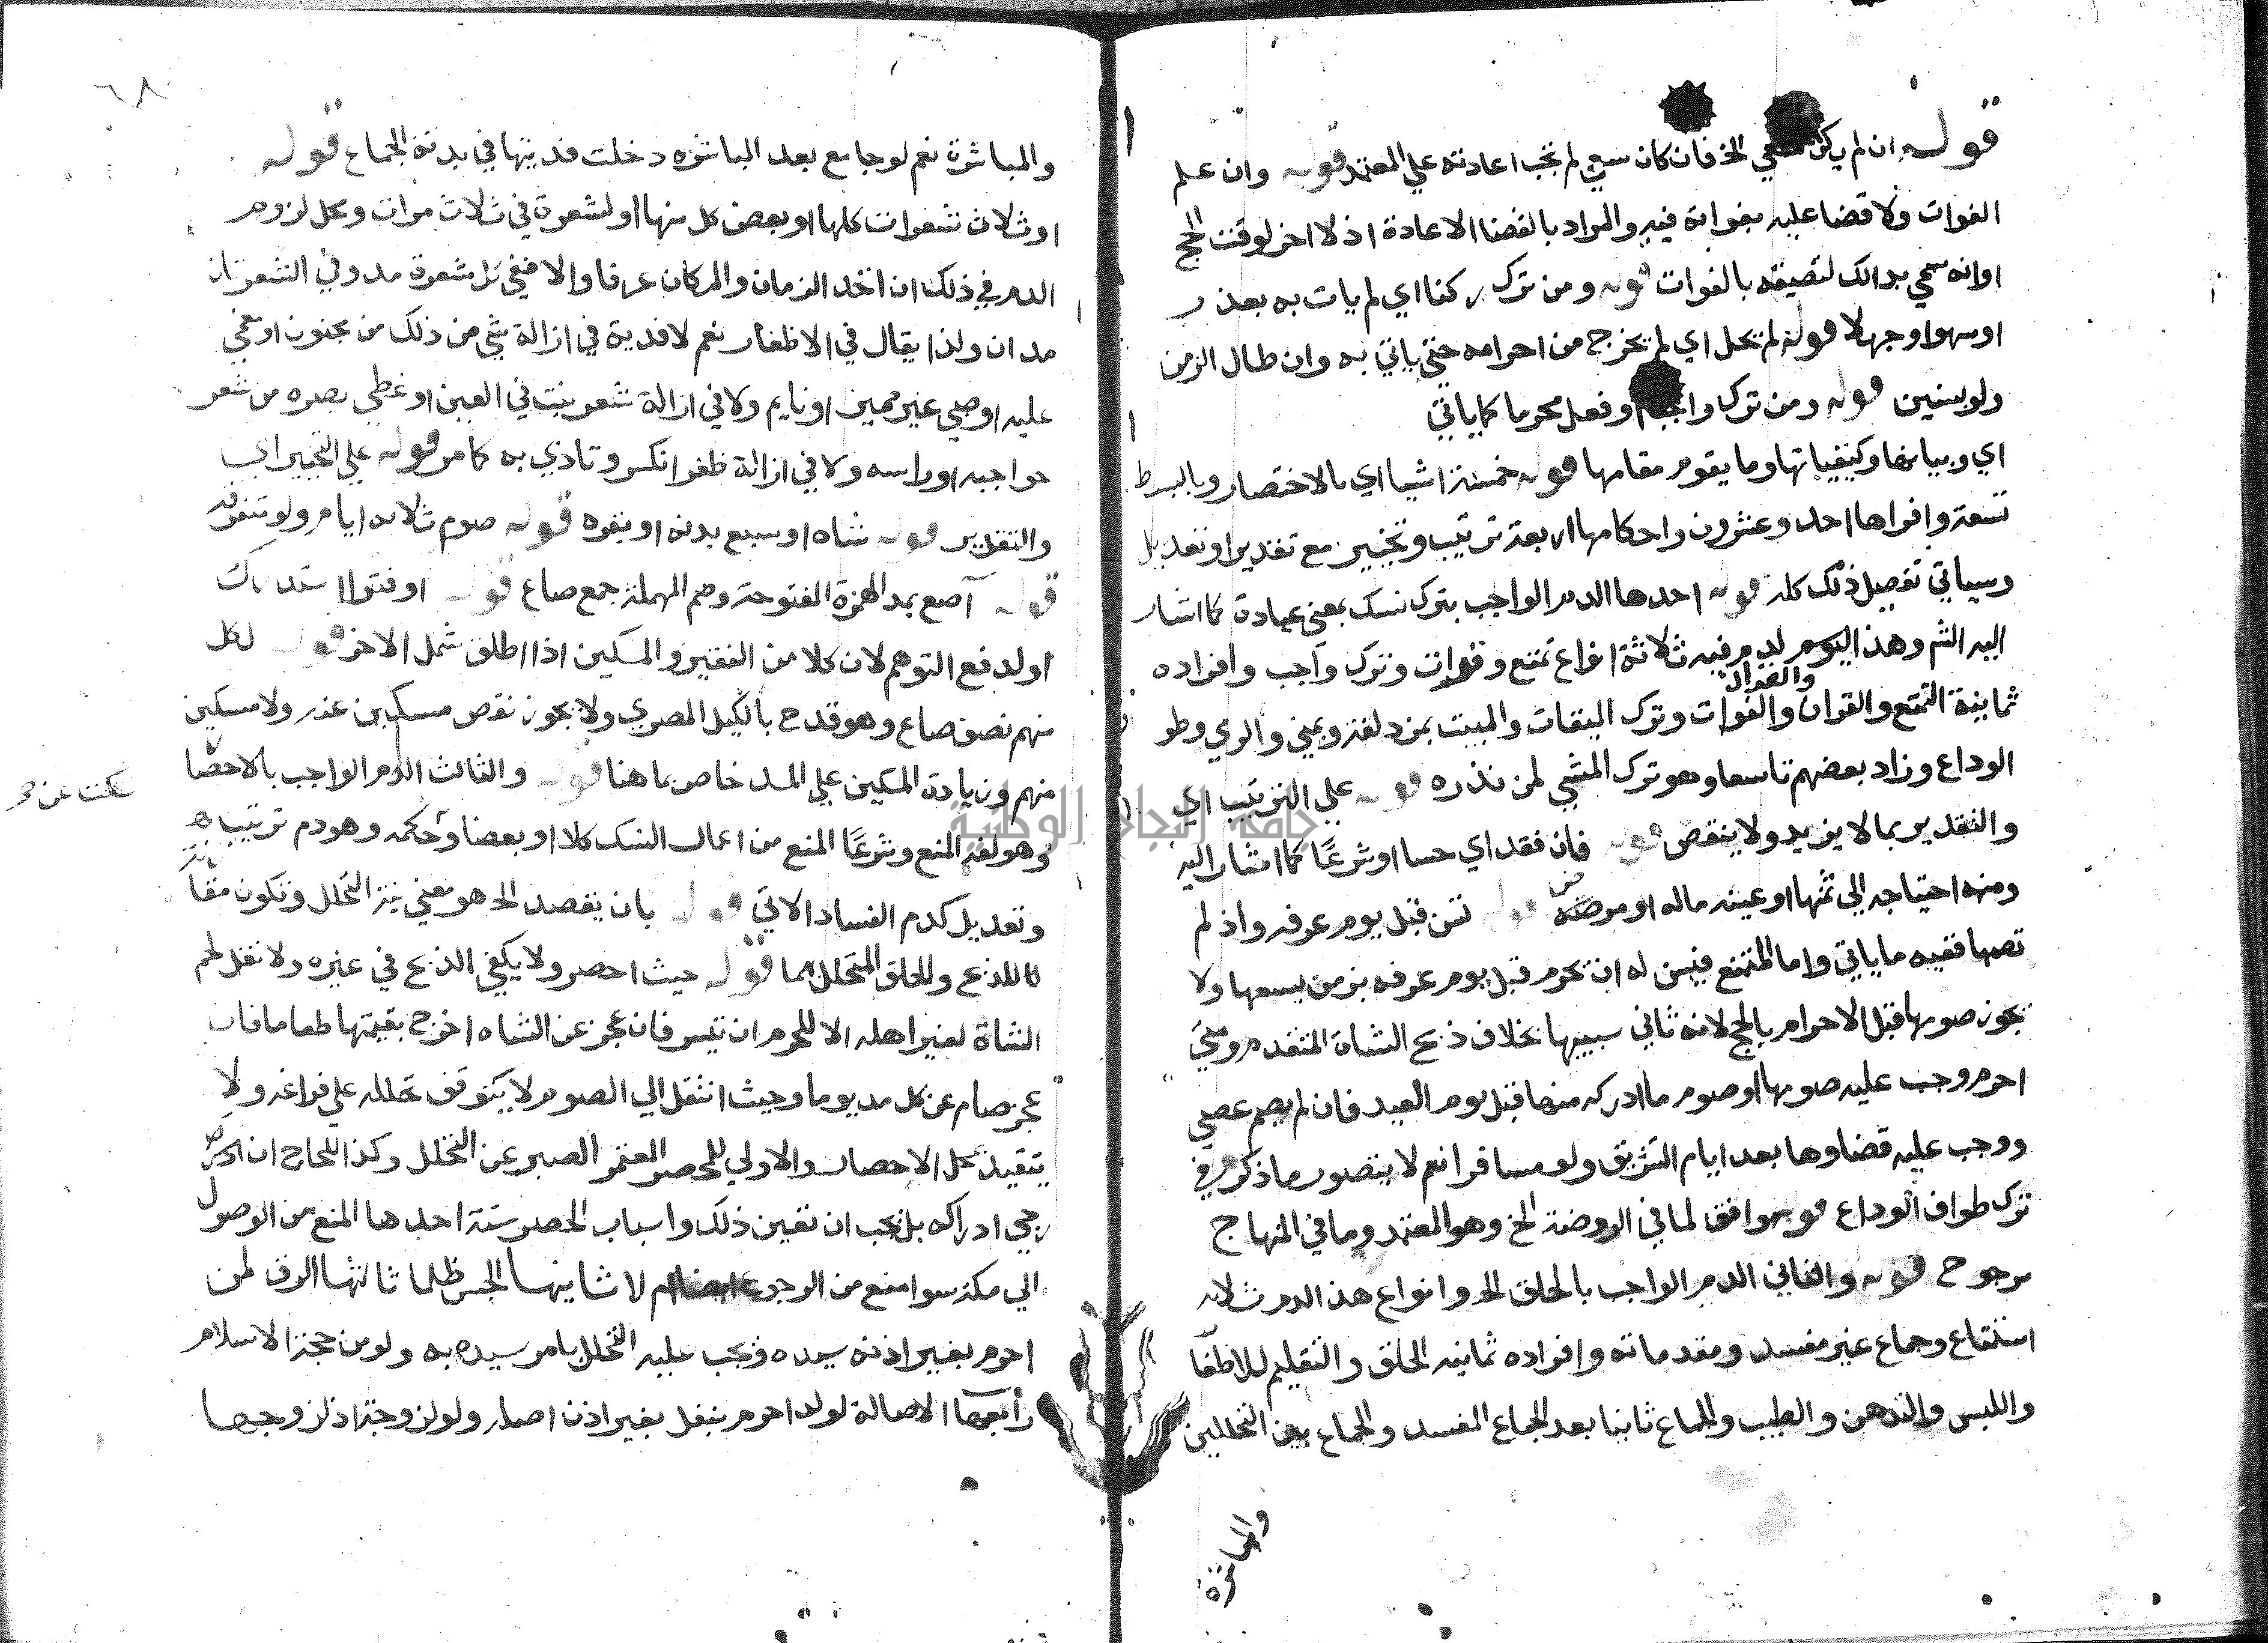 قوله ان لم يكن سعي الخ فان كان سعي لم تجب اعادته علي المعتمد قوله وان علم
الفوات ولا قضا عليه بفواته فيه والمراد بالقضا الاعادة اذ لا اخر لوقت الحج
اوانه سمي بذالك لتضيقه بالفوات قوله ومن ترك ركنا اي لم يات به بعذر
اوسهوا وجهلا قوله لم يحل اي لم يخرج من احرامه حتي ياتي به وان طال الزمن
ولوبسنين قوله ومن ترك واجبا او فعل محرما كما ياتي
اي وبيانها وكيفياتها وما يقوم مقامها قوله خمسة اشيا اي بالاختصار وبالبسط
تسعة وافرادها احد وعشرون واحكامها اربعة ترتيب وتخيير مع تقدير او تعديل
وسياتي تفصيل ذلك كله قوله احدها الدم الواجب بترك نسك بمعني عبادة كما اشار
اليه الشم وهذا النوم لدم فيه ثلاثة انواع تمتع وفوات وترك واجب وافراده
والقران
ثمانية التمتع والقوان والفوات وترك الميقات والمبيت بمزدلفة وبمني والرمي وطو
الوداع وزاد بعضهم تاسعا وهو ترك المشي لمن نذره قوله علي الترتيب اي
والتقدير بما لا يزيد ولا ينقص قوله فان فقد اي حسا او شرعًا كما اشار اليه
ومنه احتياجه الي ثمنها او غيبه ماله او مرضه قوله تسن قبل يوم عرفه واذ لم
تصها ففيه ما ياتي واما المتمتع فيسن له ان يحرم قبل يوم عرفه بزمن يسعها ولا
يجوز صومها قبل الاحرام بالحج لانه ثاني سببيها بخلاف ذبح الشاة المتقدم ومتي
احرم وجب عليه صومها او صوم ما ادركه منها قبل يوم العيد فان لم يصم عصي
ووجب عليه قضاوها بعد ايام التشريق ولو مسافرا نعم لا يتصور ما ذكر في
ترك طواف الوداع قوله موافق لما في الروضة الخ وهو المعتمد وما في المنهاج
مرجوح قوله والثاني الدم الواجب بالحلق الخ وانواع هذا الدم ثلاثه
استمتاع وجماع غير مفسد ومقدماته وافراده ثمانيه الحلق والتقليم للاظفا
واللبس والتدهن والطيب والجماع ثانيا بعد الجماع المفسد والجماع بين التحللين
والمباشرة
٦٨
والمباشرة نعم لو جامع بعد المباشره دخلت فديتها في بدنة الجماع قوله
او ثلاث شعرات كلها او بعض كل منها او لشعرة في ثلاث مرات ومحل لزوم
الدم في ذلك ان اتحد الزمان والمكان عرفا والا ففي كل شعرة مد وفي الشعرتان
مدان ولذا يقال في الاظفار نعم لا فدية في ازالة شي من ذلك من مجنون او مغمي
عليه او صبي غير مميز او نايم ولا في ازالة شعر ينبت في العين او غطي بصره من شعر
حواجبه او راسه ولا في ازالة ظفر انكسر وتاذي به كما مر قوله علي التخيير اي
والتقدير قوله شاه او سبع بدنه او بقره قوله صوم ثلاثه ايام ولو متفرقه
قوله آصع بمد الهمزة المفتوحة وضم المهملة جمع صاع قوله او فقرا استدراك
او لدفع التوهم لان كلا من الفقير والمسكين اذا اطلق شمل الاخر قوله لكل
منهم نصف صاع وهو قدح بالكيل المصري ولا يجوز نقص مسكين عنه ولا مسكين
منهم وزيادة المسكين علي المد خاص بما هنا قوله والثالث الدم الواجب بالاحصا
وهو لغة المنع وشرعًا المنع من اعمال النسك كلا او بعضا وحكمه وهو دم ترتيب
وتعديل كدم الفساد الاتي قوله بان يقصد الخ هو معني نية التحلل وتكون مقا
للذبح والحلق المتحلل بهما قوله حيث احصر ولا يكفي الذبح في غيره ولا نقل لحم
الشاة لغير اهله الا للحرم ان تيسر فان عجز عن الشاه اخرج بقيمتها طعاما فان
عجز صام عن كل مد يوما وحيث انتقل الي الصوم لا يتوقف تحلله علي فراغه ولا
يتقيد بمحل الاحصار والاولي للمحصر المعتمر الصبر عن التحلل وكذا للحاج ان
رجي ادراكه بل يجب ان تعين ذلك واسباب الحصر ستة احدها المنع من الوصول
الي مكة سوا منع من الرجوع ايضا ام لا ثانيها الحبس ظلما ثالثها الرق لمن
احرم بغير اذنه سيده ويجب عليه التحلل بامر سيده به ولو من حجة الاسلام
رابعها الاصالة لولد احرم بنفل بغير اذن اصله ولو لزوجة اذن زوجها